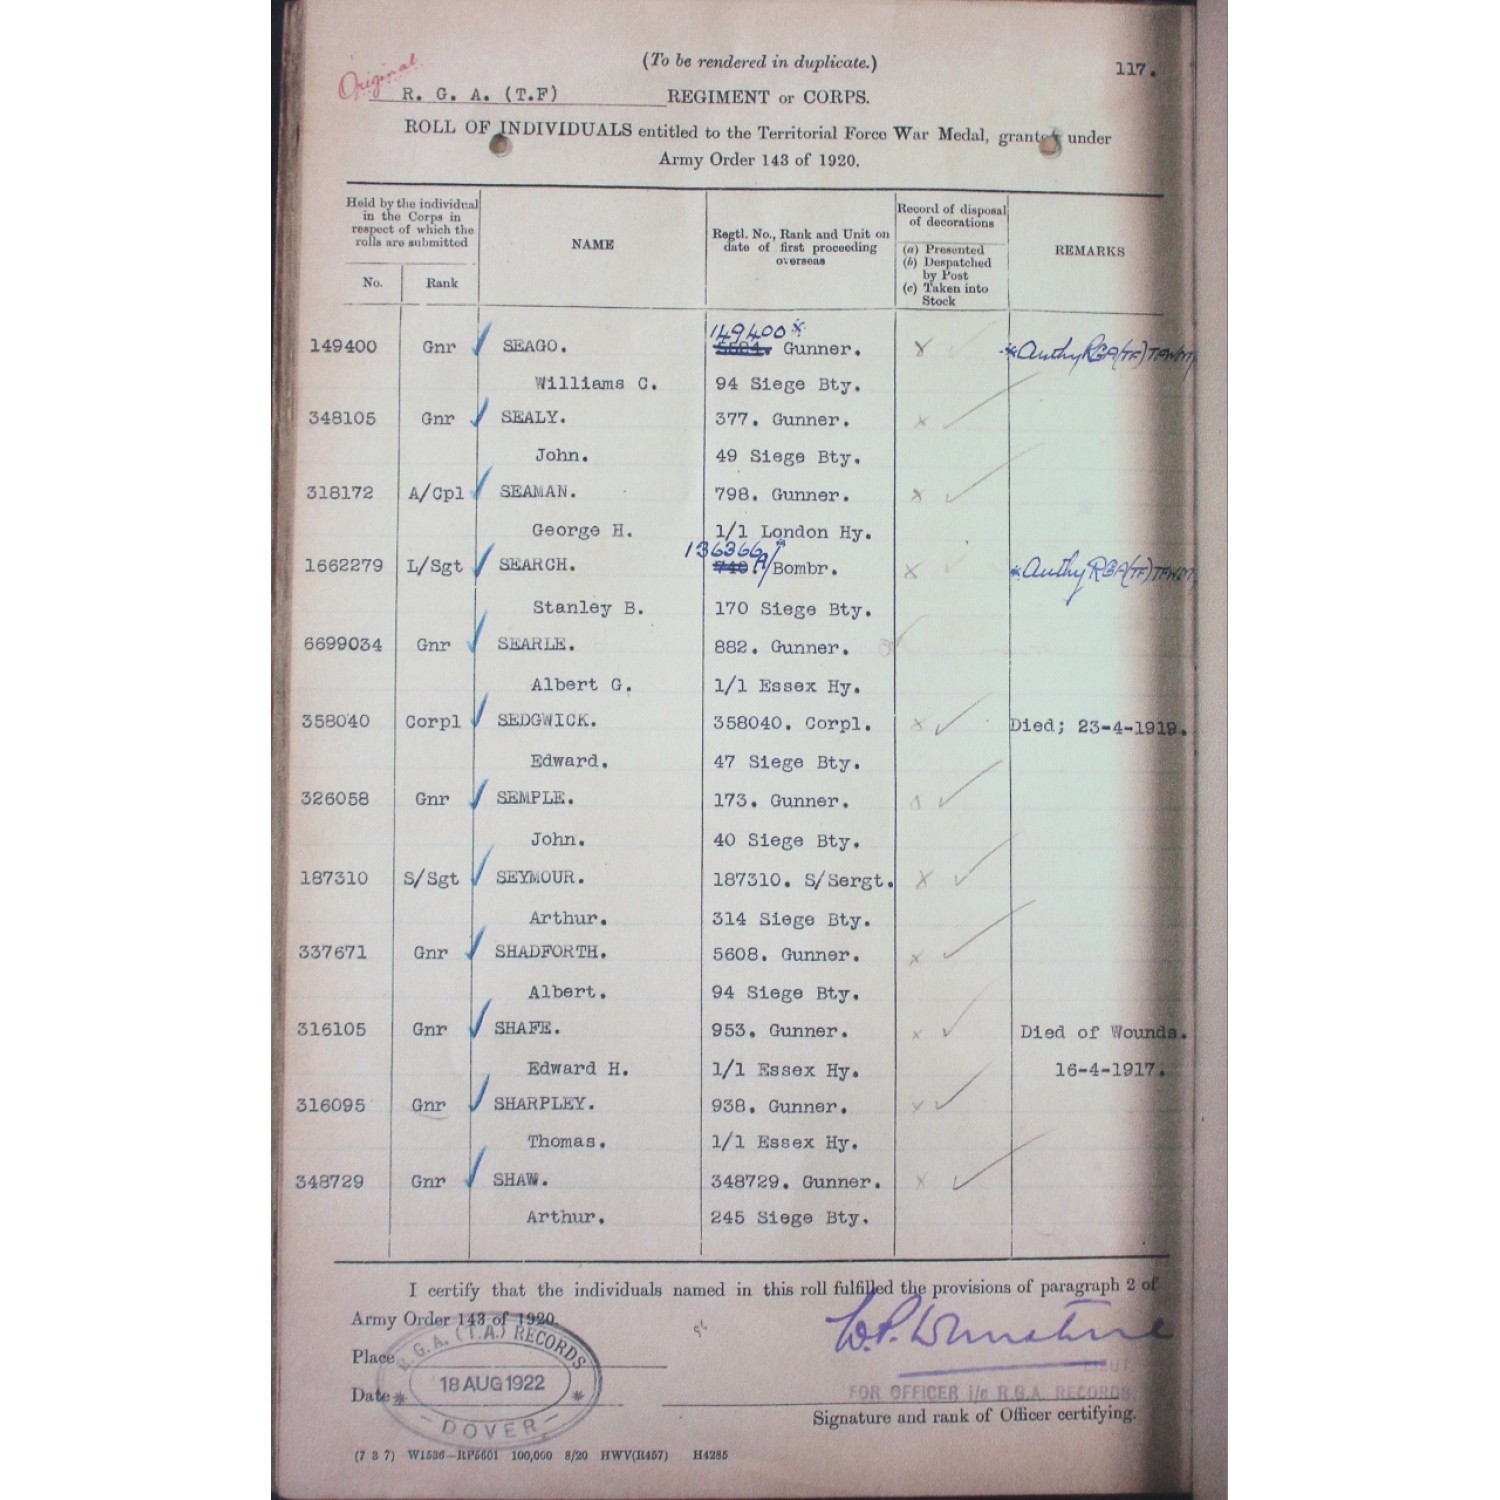 Original
(To be rendered in duplicate.)
117.
R. G. A. (T.F) REGIMENT or CORPS.
ROLL OF INDIVIDUALS entitled to the Territorial Force War Medal, granted under
Army Order 143 of 1920.
Held by the individual in the Corps in respect of which the rolls are submitted
No.
Rank
NAME
Regtl. No., Rank and Unit on date of first proceeding overseas
Record of disposal of decorations
(a) Presented
(b) Despatched by Post
(c) Taken into Stock
REMARKS
149400*
149400 Gnr SEAGO. Gunner. x *Authy RGA(TF)TFWM
Williams C. 94 Siege Bty.
348105 Gnr SEALY. 377. Gunner. x
John. 49 Siege Bty.
318172 A/Cpl SEAMAN. 798. Gunner. x
George H. 1/1 London Hy.
136366
1662279 L/Sgt SEARCH. 740. A/Bombr. x *Authy RGA(TF)TFWM
Stanley B. 170 Siege Bty.
6699034 Gnr SEARLE. 882. Gunner.
Albert G. 1/1 Essex Hy.
358040 Corpl SEDGWICK. 358040. Corpl. x Died; 23-4-1919.
Edward. 47 Siege Bty.
326058 Gnr SEMPLE. 173. Gunner.
John. 40 Siege Bty.
187310 S/Sgt SEYMOUR. 187310. S/Sergt. x
Arthur. 314 Siege Bty.
337671 Gnr SHADFORTH. 5608. Gunner. x
Albert. 94 Siege Bty.
316105 Gnr SHAFE. 953. Gunner. x Died of Wounds.
Edward H. 1/1 Essex Hy. 16-4-1917.
316095 Gnr SHARPLEY. 938. Gunner. x
Thomas. 1/1 Essex Hy.
348729 Gnr SHAW. 348729. Gunner. x
Arthur. 245 Siege Bty.
I certify that the individuals named in this roll fulfilled the provisions of paragraph 2 of
Army Order 143 of 1920.
R.G.A. (T.A.) RECORDS
Place
18 AUG 1922
Date
DOVER
LIEUT.
FOR OFFICER i/c R.G.A. RECORDS
Signature and rank of Officer certifying.
(7 3 7) W1536—RP5601 100,000 8/20 HWV(R457) H4285